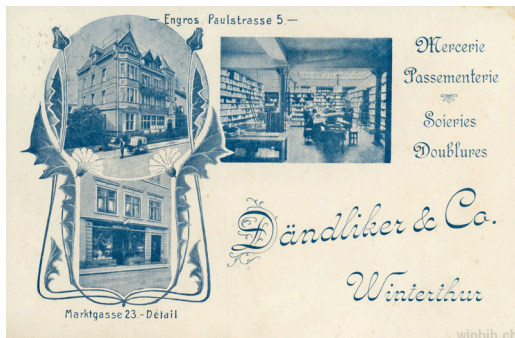 — Engros Paulstrasse 5. —
Mercerie
Passementerie
Soieries
Doublures
Dändliker & Co.
Winterthur
Marktgasse 23. - Détail
winbib.ch